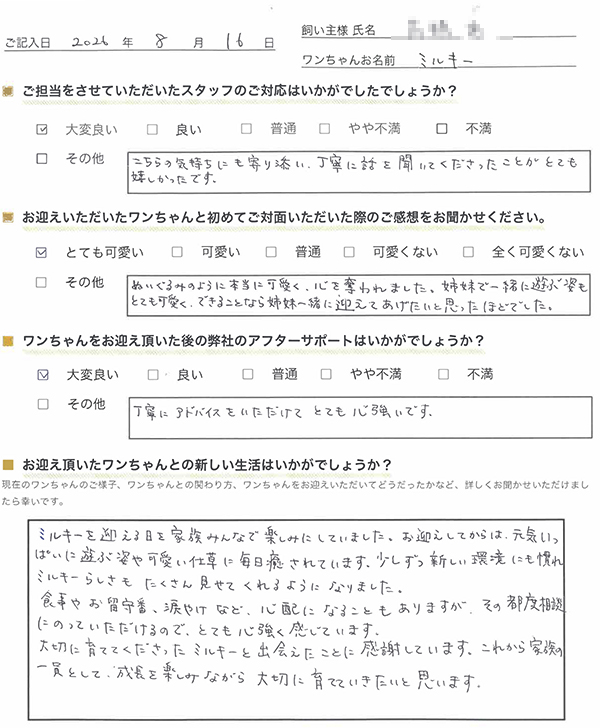 ご記入日 2026 年 8 月 16 日
飼い主様 氏名
ワンちゃんお名前 ミルキー
ご担当をさせていただいたスタッフのご対応はいかがでしたでしょうか？
☑ 大変良い □ 良い □ 普通 □ やや不満 □ 不満
□ その他 こちらの気持ちにも寄り添い、丁寧に話を聞いてくださったことがとても
嬉しかったです。
お迎えいただいたワンちゃんと初めてご対面いただいた際のご感想をお聞かせください。
☑ とても可愛い □ 可愛い □ 普通 □ 可愛くない □ 全く可愛くない
□ その他 ぬいぐるみのように本当に可愛く、心を奪われました。姉妹で一緒に遊ぶ姿も
とても可愛く、できることなら姉妹一緒に迎えてあげたいと思ったほどでした。
ワンちゃんをお迎え頂いた後の弊社のアフターサポートはいかがでしょうか？
☑ 大変良い □ 良い □ 普通 □ やや不満 □ 不満
□ その他 丁寧にアドバイスをいただけてとても心強いです。
お迎え頂いたワンちゃんとの新しい生活はいかがでしょうか？
現在のワンちゃんのご様子、ワンちゃんとの関わり方、ワンちゃんをお迎えいただいてどうだったかなど、詳しくお聞かせいただけまし
たら幸いです。
ミルキーを迎える日を家族みんなで楽しみにしていました。お迎えしてからは、元気いっ
ぱいに遊ぶ姿や可愛い仕草に毎日癒されています。少しずつ新しい環境にも慣れ
ミルキーらしさもたくさん見せてくれるようになりました。
食事やお留守番、涙やけなど、心配になることもありますが、その都度相談
にのっていただけるので、とても心強く感じています。
大切に育ててくださったミルキーと出会えたことに感謝しています。これから家族の
一員として、成長を楽しみながら大切に育てていきたいと思います。